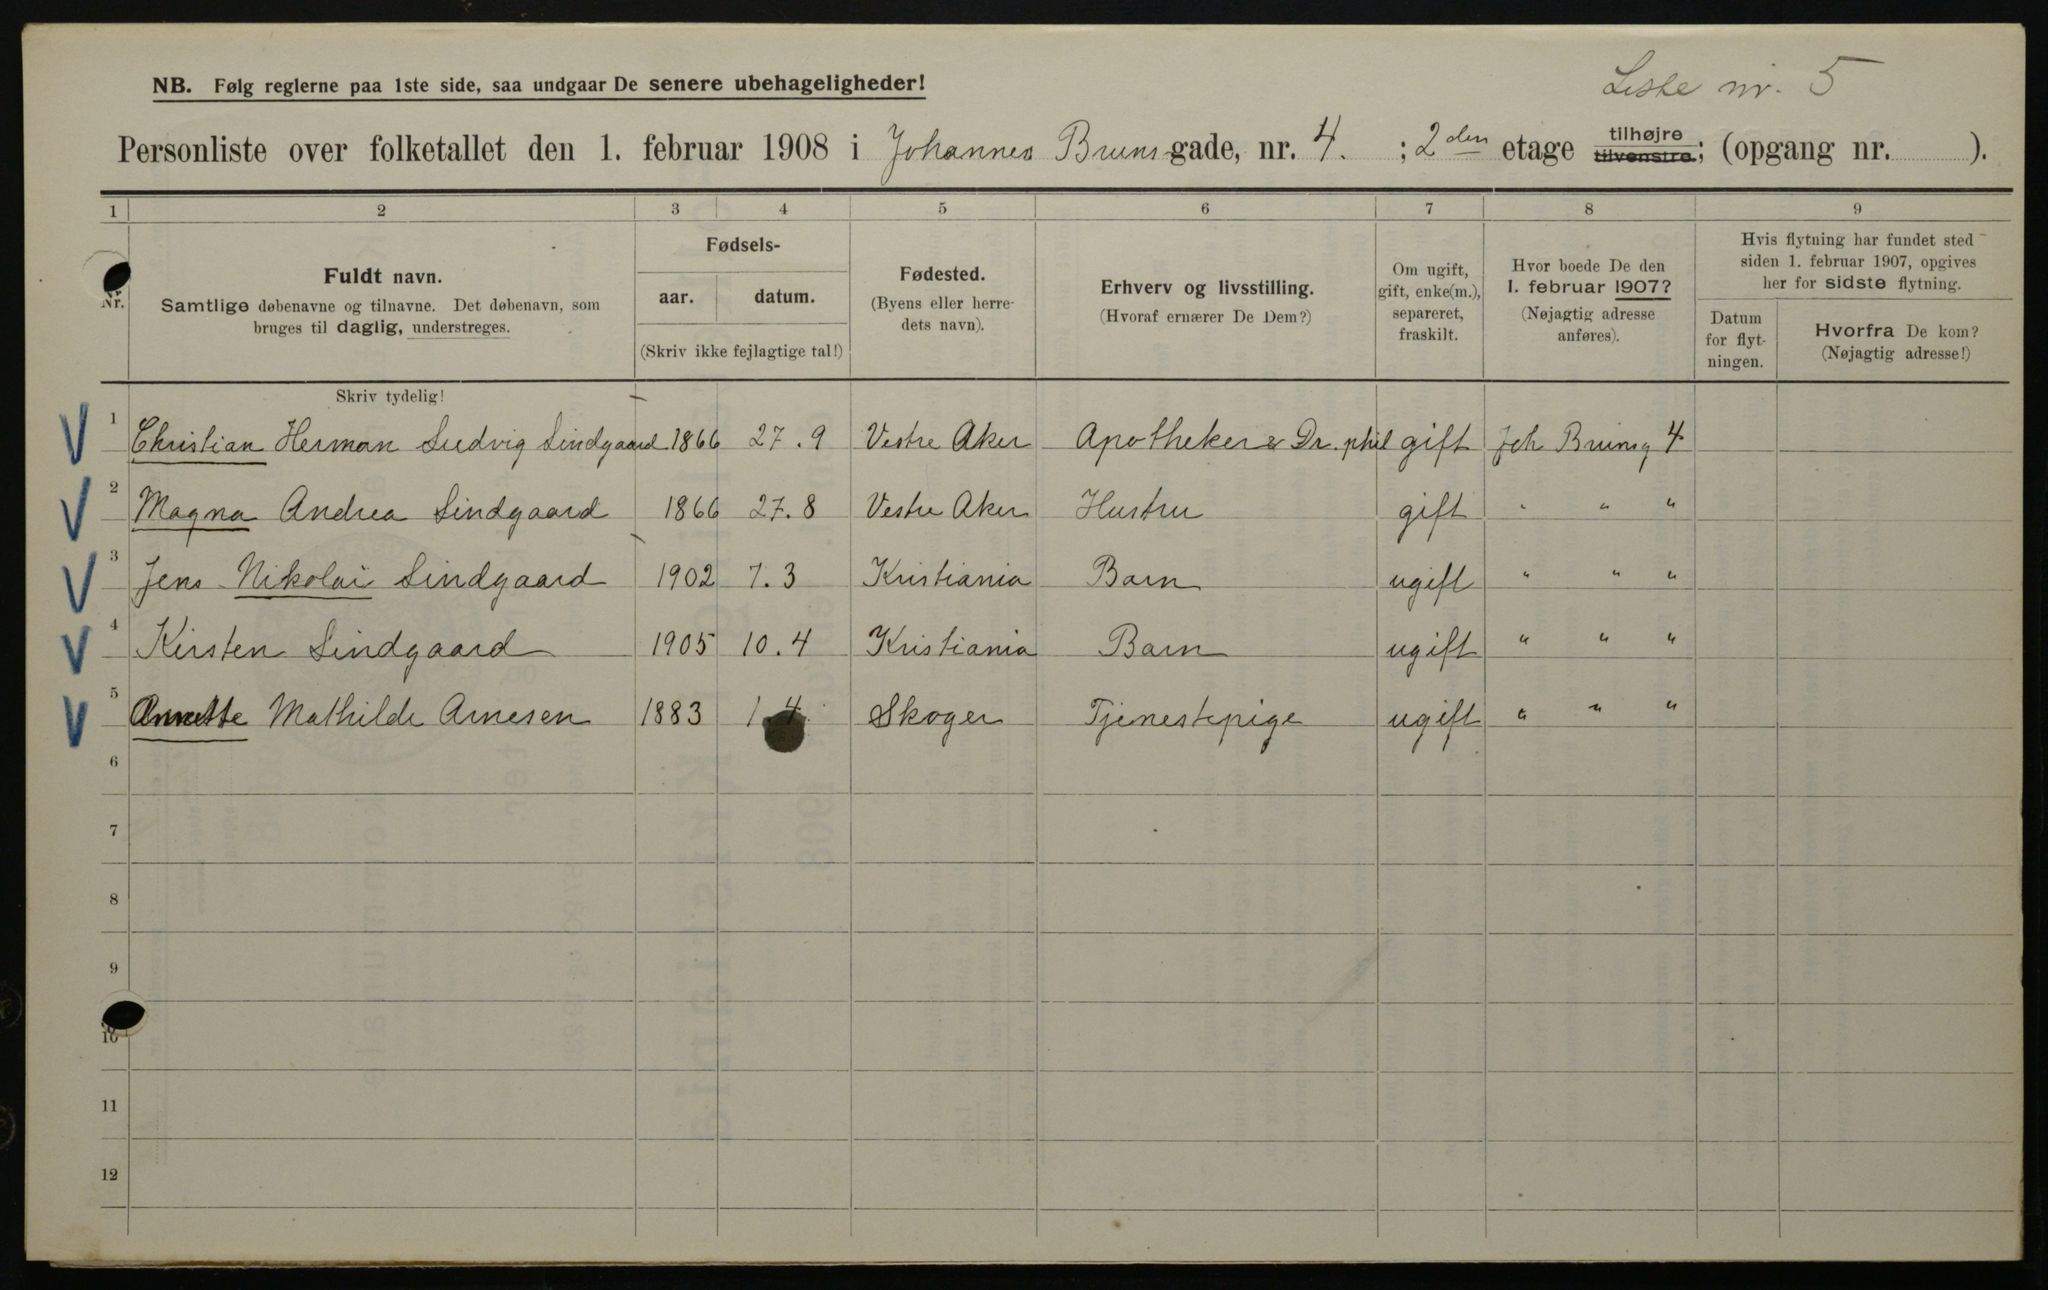 Liste nr. 5
NB. Følg reglerne paa 1ste side, saa undgaar De senere ubehageligheder!
Personliste over folketallet den 1. februar 1908 i Johannes Bruns gade, nr. 4. ; 2den etage tilhøjre tilvenstre; (opgang nr. ).
1 2 3 4 5 6 7 8 9
Nr.
Fuldt navn.
Samtlige døbenavne og tilnavne. Det døbenavn, som
bruges til daglig, understreges.
Fødsels-
aar. datum.
(Skriv ikke fejlagtige tal!)
Fødested.
(Byens eller herre-
dets navn).
Erhverv og livsstilling.
(Hvoraf ernærer De Dem?)
Om ugift,
gift, enke(m.),
separeret,
fraskilt.
Hvor boede De den
1. februar 1907?
(Nøjagtig adresse
anføres).
Hvis flytning har fundet sted
siden 1. februar 1907, opgives
her for sidste flytning.
Datum
for flyt-
ningen.
Hvorfra De kom?
(Nøjagtig adresse!)
Skriv tydelig!
1 Christian Herman Ludvig Lindgaard 1866 27.9 Vestre Aker Apotheker & Dr. phil gift Joh Brunsg 4
2 Magna Andrea Lindgaard 1866 27.8 Vestre Aker Hustru gift " " "
3 Jens Nikolai Lindgaard 1902 7.3 Kristiania Barn ugift " " "
4 Kirsten Lindgaard 1905 10.4 Kristiania Barn ugift " " "
5 Annette Mathilde Arnesen 1883 1.4. Skoger Tjenestepige ugift " " "
6
7
8
9
10
11
12